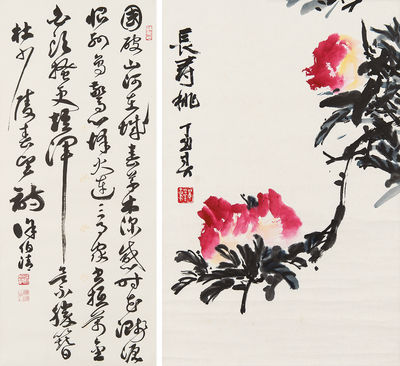 國破山河在城春草木深感時花濺淚
恨別鳥驚心烽火連三月家書抵萬金
白頭搔更短渾欲不勝簪
杜少陵春望詩
徐伯清
長壽桃